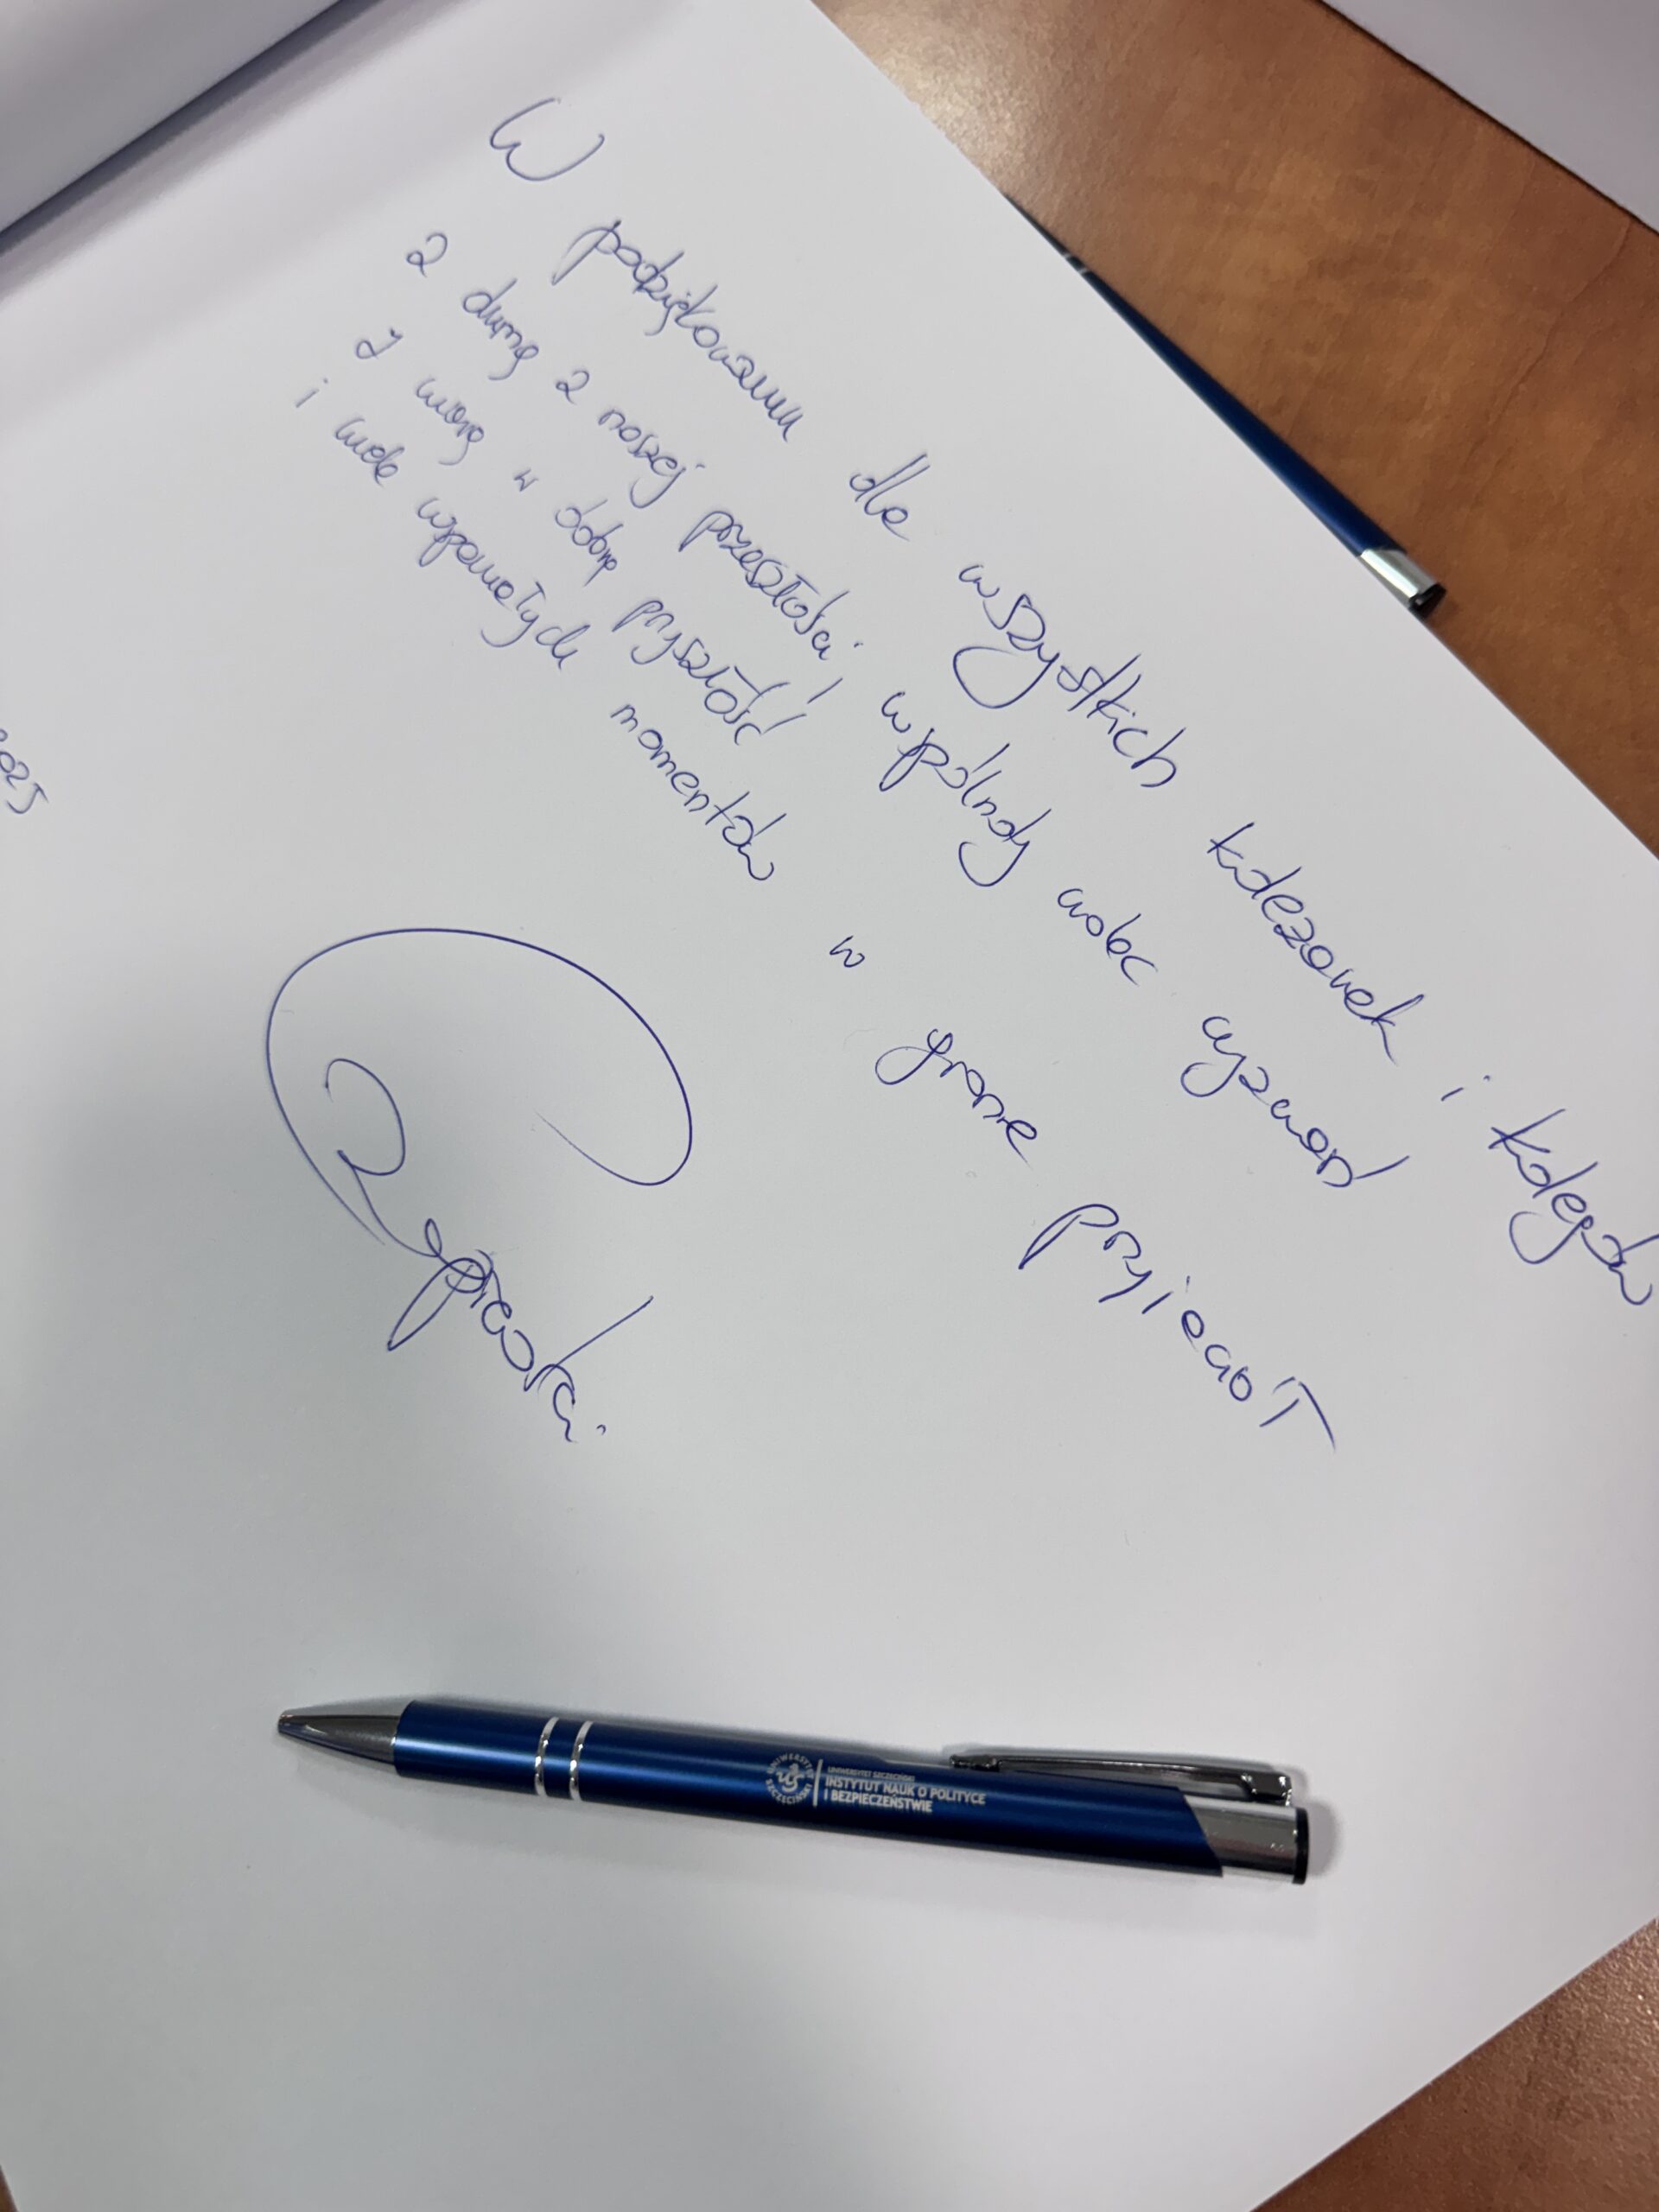 W podziękowaniu dla wszystkich koleżanek i kolegów
z dumą z naszej przeszłości, wspólnoty wobec wyzwań
z wiarą w dobrą przyszłość
i wiele wspaniałych momentów w gronie przyjaciół
2025
UNIWERSYTET SZCZECIŃSKI
UNIWERSYTET SZCZECIŃSKI
INSTYTUT NAUK O POLITYCE
I BEZPIECZEŃSTWIE